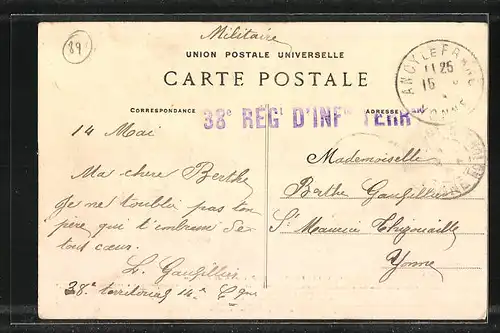 89
Militaire
UNION POSTALE UNIVERSELLE
CARTE POSTALE
CORRESPONDANCE
ADRESSE
38e REGt D'INFie TERRle
ANCY LE FRANC
11 25
15
YONNE
14 Mai
Ma chere Berthe
Je ne toublie pas ton
père qui t'embrasse de
tout cœur.
L. Gaufillier
38e territorial 14e Cgnie
Mademoiselle
Berthe Gaufillier
St Maurice Thizouaille
Yonne